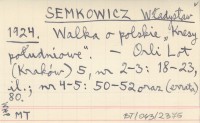 SEMKOWICZ Władysław
1924. Walka o polskie „Kresy
południowe”. – Orli Lot
(Kraków) 5, nr 2-3: 18-23,
il.; nr 4-5: 50-52 oraz (errata)
80.
MT
BT/043/2375